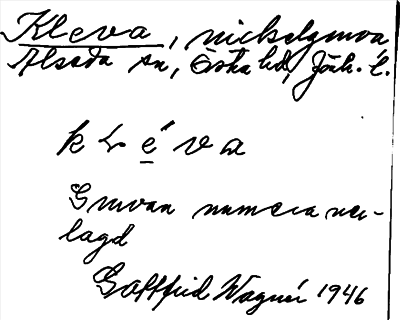 Kleva, nickelgruva
Alseda sn, Östra hd, Jönk. l.
k l é v a
Gruvan numera ner-
lagd
Gottfrid Wagnér 1946